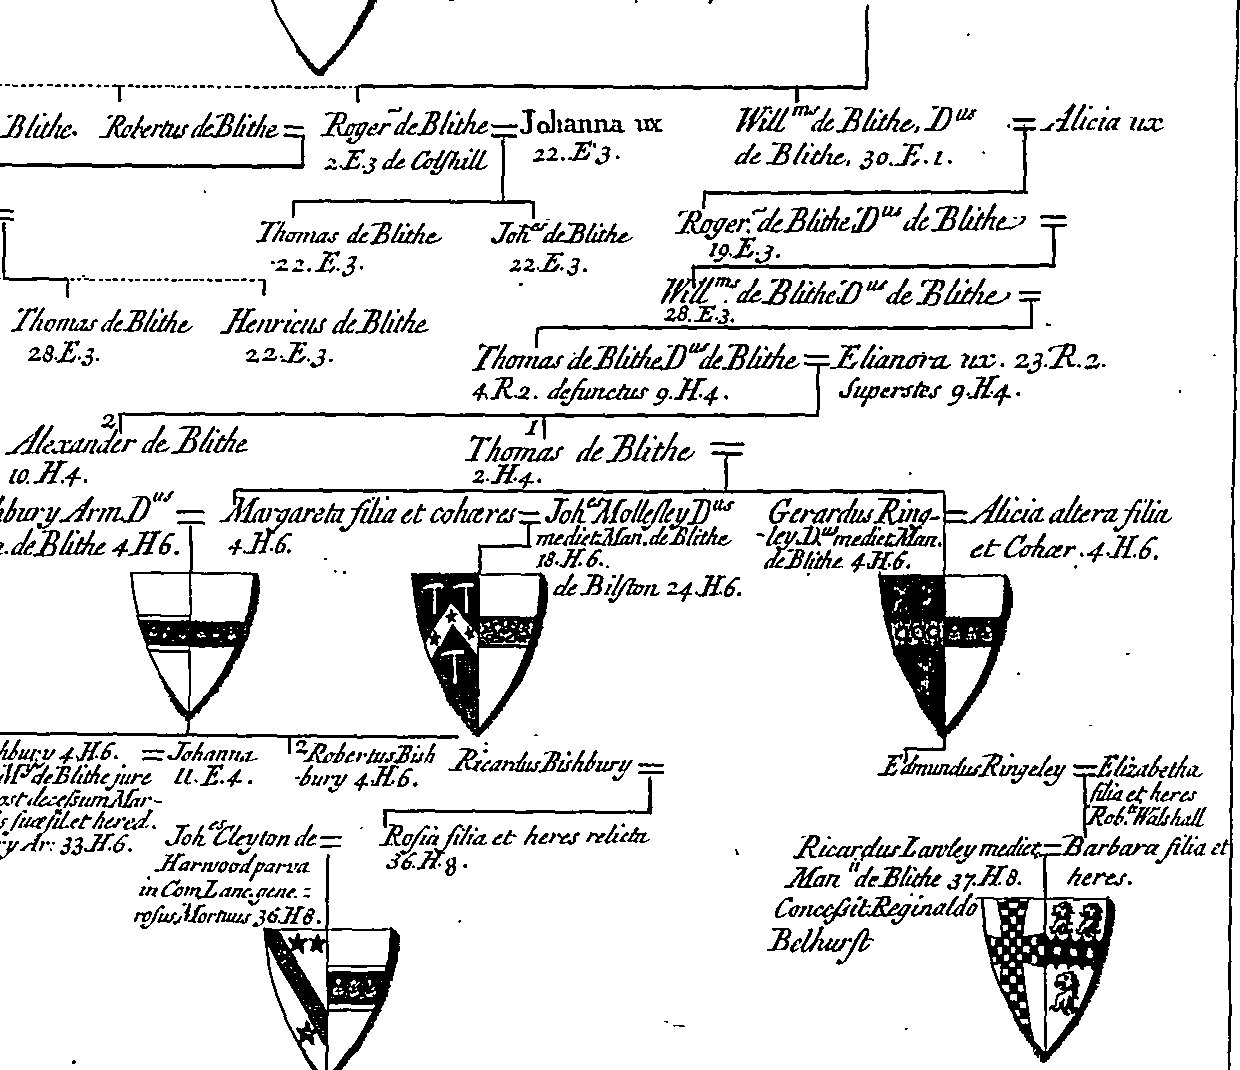 Blithe. Robertus de Blithe = Roger~ de Blithe = Johanna ux
2.E.3 de Colshill 22.E.3.
Will^ms de Blithe, D^us = Alicia ux
de Blithe, 30.E.1.
Thomas de Blithe Joh^es de Blithe
22.E.3. 22.E.3.
Roger~ de Blithe D^us de Blithe =
19.E.3.
Will^ms de Blithe D^us de Blithe =
28.E.3.
Thomas de Blithe Henricus de Blithe
28.E.3. 22.E.3.
Thomas de Blithe D^us de Blithe = Elianora ux. 23.R.2.
4.R.2. defunctus 9.H.4. Superstes 9.H.4.
2 1
Alexander de Blithe Thomas de Blithe =
10.H.4. 2.H.4.
bury Arm. D^us = Margareta filia et cohæres = Joh^es Mollesley D^us
de Blithe 4 H 6. 4.H.6. mediet Man. de Blithe
18.H.6.
de Bilston 24.H.6.
Gerardus Ring- = Alicia altera filia
-ley. D^us mediet Man. et Cohær. 4.H.6.
de Blithe 4.H.6.
bury 4.H.6. = Johanna 2 Robertus Bish Ricardus Bishbury =
de Blithe jure 11.E.4. -bury 4.H.6.
decessum Mar-
et hered.
Ar: 33.H.6.
Joh^es Cleyton de = Rosia filia et heres relicta
Harwood parva 36.H.8.
in Com Lanc. gene-
rosus Mortuus 36 H 8.
Edmundus Ringeley = Elizabetha
filia et heres
Rob.^ti Walshall
Ricardus Lawley mediet = Barbara filia et
Man^ii de Blithe 37.H.8. heres.
Concessit Reginaldo
Belhurst